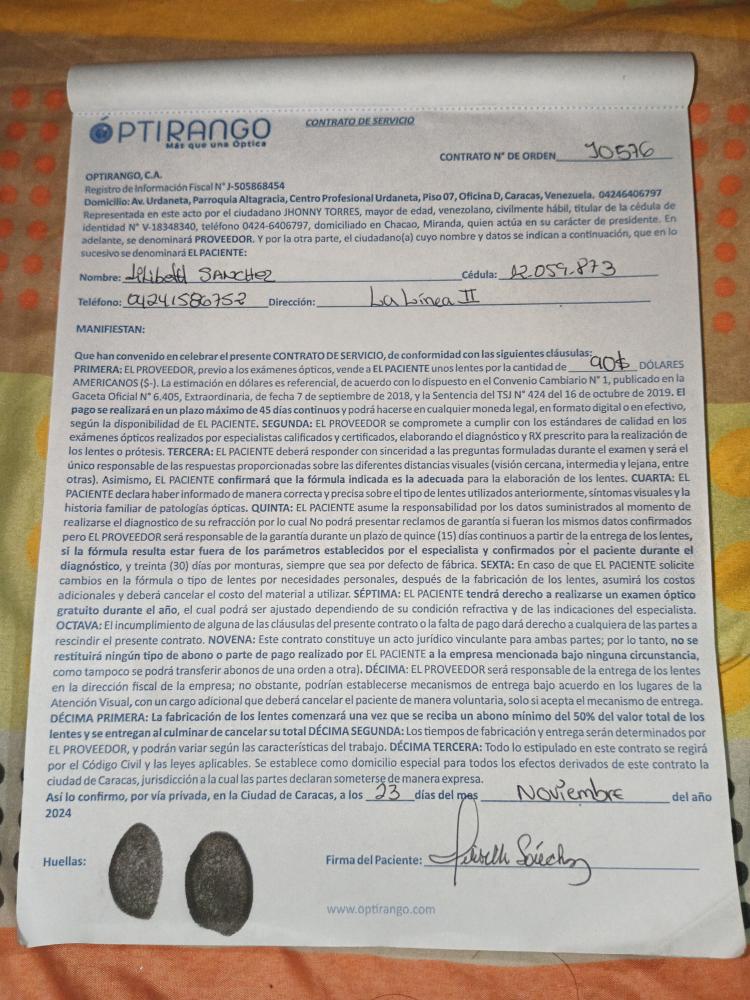 OPTIRANGO
Más que una Óptica
CONTRATO DE SERVICIO
CONTRATO N° DE ORDEN 10576
OPTIRANGO, C.A.
Registro de Información Fiscal N° J-505868454
Domicilio: Av. Urdaneta, Parroquia Altagracia, Centro Profesional Urdaneta, Piso 07, Oficina D, Caracas, Venezuela. 04246406797
Representada en este acto por el ciudadano JHONNY TORRES, mayor de edad, venezolano, civilmente hábil, titular de la cédula de
identidad N° V-18348340, teléfono 0424-6406797, domiciliado en Chacao, Miranda, quien actúa en su carácter de presidente. En
adelante, se denominará PROVEEDOR. Y por la otra parte, el ciudadano(a) cuyo nombre y datos se indican a continuación, que en lo
sucesivo se denominará EL PACIENTE:
Nombre: SANCHEZ Cédula: 12.059.873
Teléfono: 04241586752 Dirección: La Línea II
MANIFIESTAN:
Que han convenido en celebrar el presente CONTRATO DE SERVICIO, de conformidad con las siguientes cláusulas:
PRIMERA: EL PROVEEDOR, previo a los exámenes ópticos, vende a EL PACIENTE unos lentes por la cantidad de 90$ DÓLARES
AMERICANOS ($-). La estimación en dólares es referencial, de acuerdo con lo dispuesto en el Convenio Cambiario N° 1, publicado en la
Gaceta Oficial N° 6.405, Extraordinaria, de fecha 7 de septiembre de 2018, y la Sentencia del TSJ N° 424 del 16 de octubre de 2019. El
pago se realizará en un plazo máximo de 45 días continuos y podrá hacerse en cualquier moneda legal, en formato digital o en efectivo,
según la disponibilidad de EL PACIENTE. SEGUNDA: EL PROVEEDOR se compromete a cumplir con los estándares de calidad en los
exámenes ópticos realizados por especialistas calificados y certificados, elaborando el diagnóstico y RX prescrito para la realización de
los lentes o prótesis. TERCERA: EL PACIENTE deberá responder con sinceridad a las preguntas formuladas durante el examen y será el
único responsable de las respuestas proporcionadas sobre las diferentes distancias visuales (visión cercana, intermedia y lejana, entre
otras). Asimismo, EL PACIENTE confirmará que la fórmula indicada es la adecuada para la elaboración de los lentes. CUARTA: EL
PACIENTE declara haber informado de manera correcta y precisa sobre el tipo de lentes utilizados anteriormente, síntomas visuales y la
historia familiar de patologías ópticas. QUINTA: EL PACIENTE asume la responsabilidad por los datos suministrados al momento de
realizarse el diagnostico de su refracción por lo cual No podrá presentar reclamos de garantía si fueran los mismos datos confirmados
pero EL PROVEEDOR será responsable de la garantía durante un plazo de quince (15) días continuos a partir de la entrega de los lentes,
si la fórmula resulta estar fuera de los parámetros establecidos por el especialista y confirmados por el paciente durante el
diagnóstico, y treinta (30) días por monturas, siempre que sea por defecto de fábrica. SEXTA: En caso de que EL PACIENTE solicite
cambios en la fórmula o tipo de lentes por necesidades personales, después de la fabricación de los lentes, asumirá los costos
adicionales y deberá cancelar el costo del material a utilizar. SÉPTIMA: EL PACIENTE tendrá derecho a realizarse un examen óptico
gratuito durante el año, el cual podrá ser ajustado dependiendo de su condición refractiva y de las indicaciones del especialista.
OCTAVA: El incumplimiento de alguna de las cláusulas del presente contrato o la falta de pago dará derecho a cualquiera de las partes a
rescindir el presente contrato. NOVENA: Este contrato constituye un acto jurídico vinculante para ambas partes; por lo tanto, no se
restituirá ningún tipo de abono o parte de pago realizado por EL PACIENTE a la empresa mencionada bajo ninguna circunstancia,
como tampoco se podrá transferir abonos de una orden a otra). DÉCIMA: EL PROVEEDOR será responsable de la entrega de los lentes
en la dirección fiscal de la empresa; no obstante, podrían establecerse mecanismos de entrega bajo acuerdo en los lugares de la
Atención Visual, con un cargo adicional que deberá cancelar el paciente de manera voluntaria, solo si acepta el mecanismo de entrega.
DÉCIMA PRIMERA: La fabricación de los lentes comenzará una vez que se reciba un abono mínimo del 50% del valor total de los
lentes y se entregan al culminar de cancelar su total DÉCIMA SEGUNDA: Los tiempos de fabricación y entrega serán determinados por
EL PROVEEDOR, y podrán variar según las características del trabajo. DÉCIMA TERCERA: Todo lo estipulado en este contrato se regirá
por el Código Civil y las leyes aplicables. Se establece como domicilio especial para todos los efectos derivados de este contrato la
ciudad de Caracas, jurisdicción a la cual las partes declaran someterse de manera expresa.
Así lo confirmo, por vía privada, en la Ciudad de Caracas, a los 23 días del mes Noviembre del año
2024
Huellas:
Firma del Paciente:
www.optirango.com